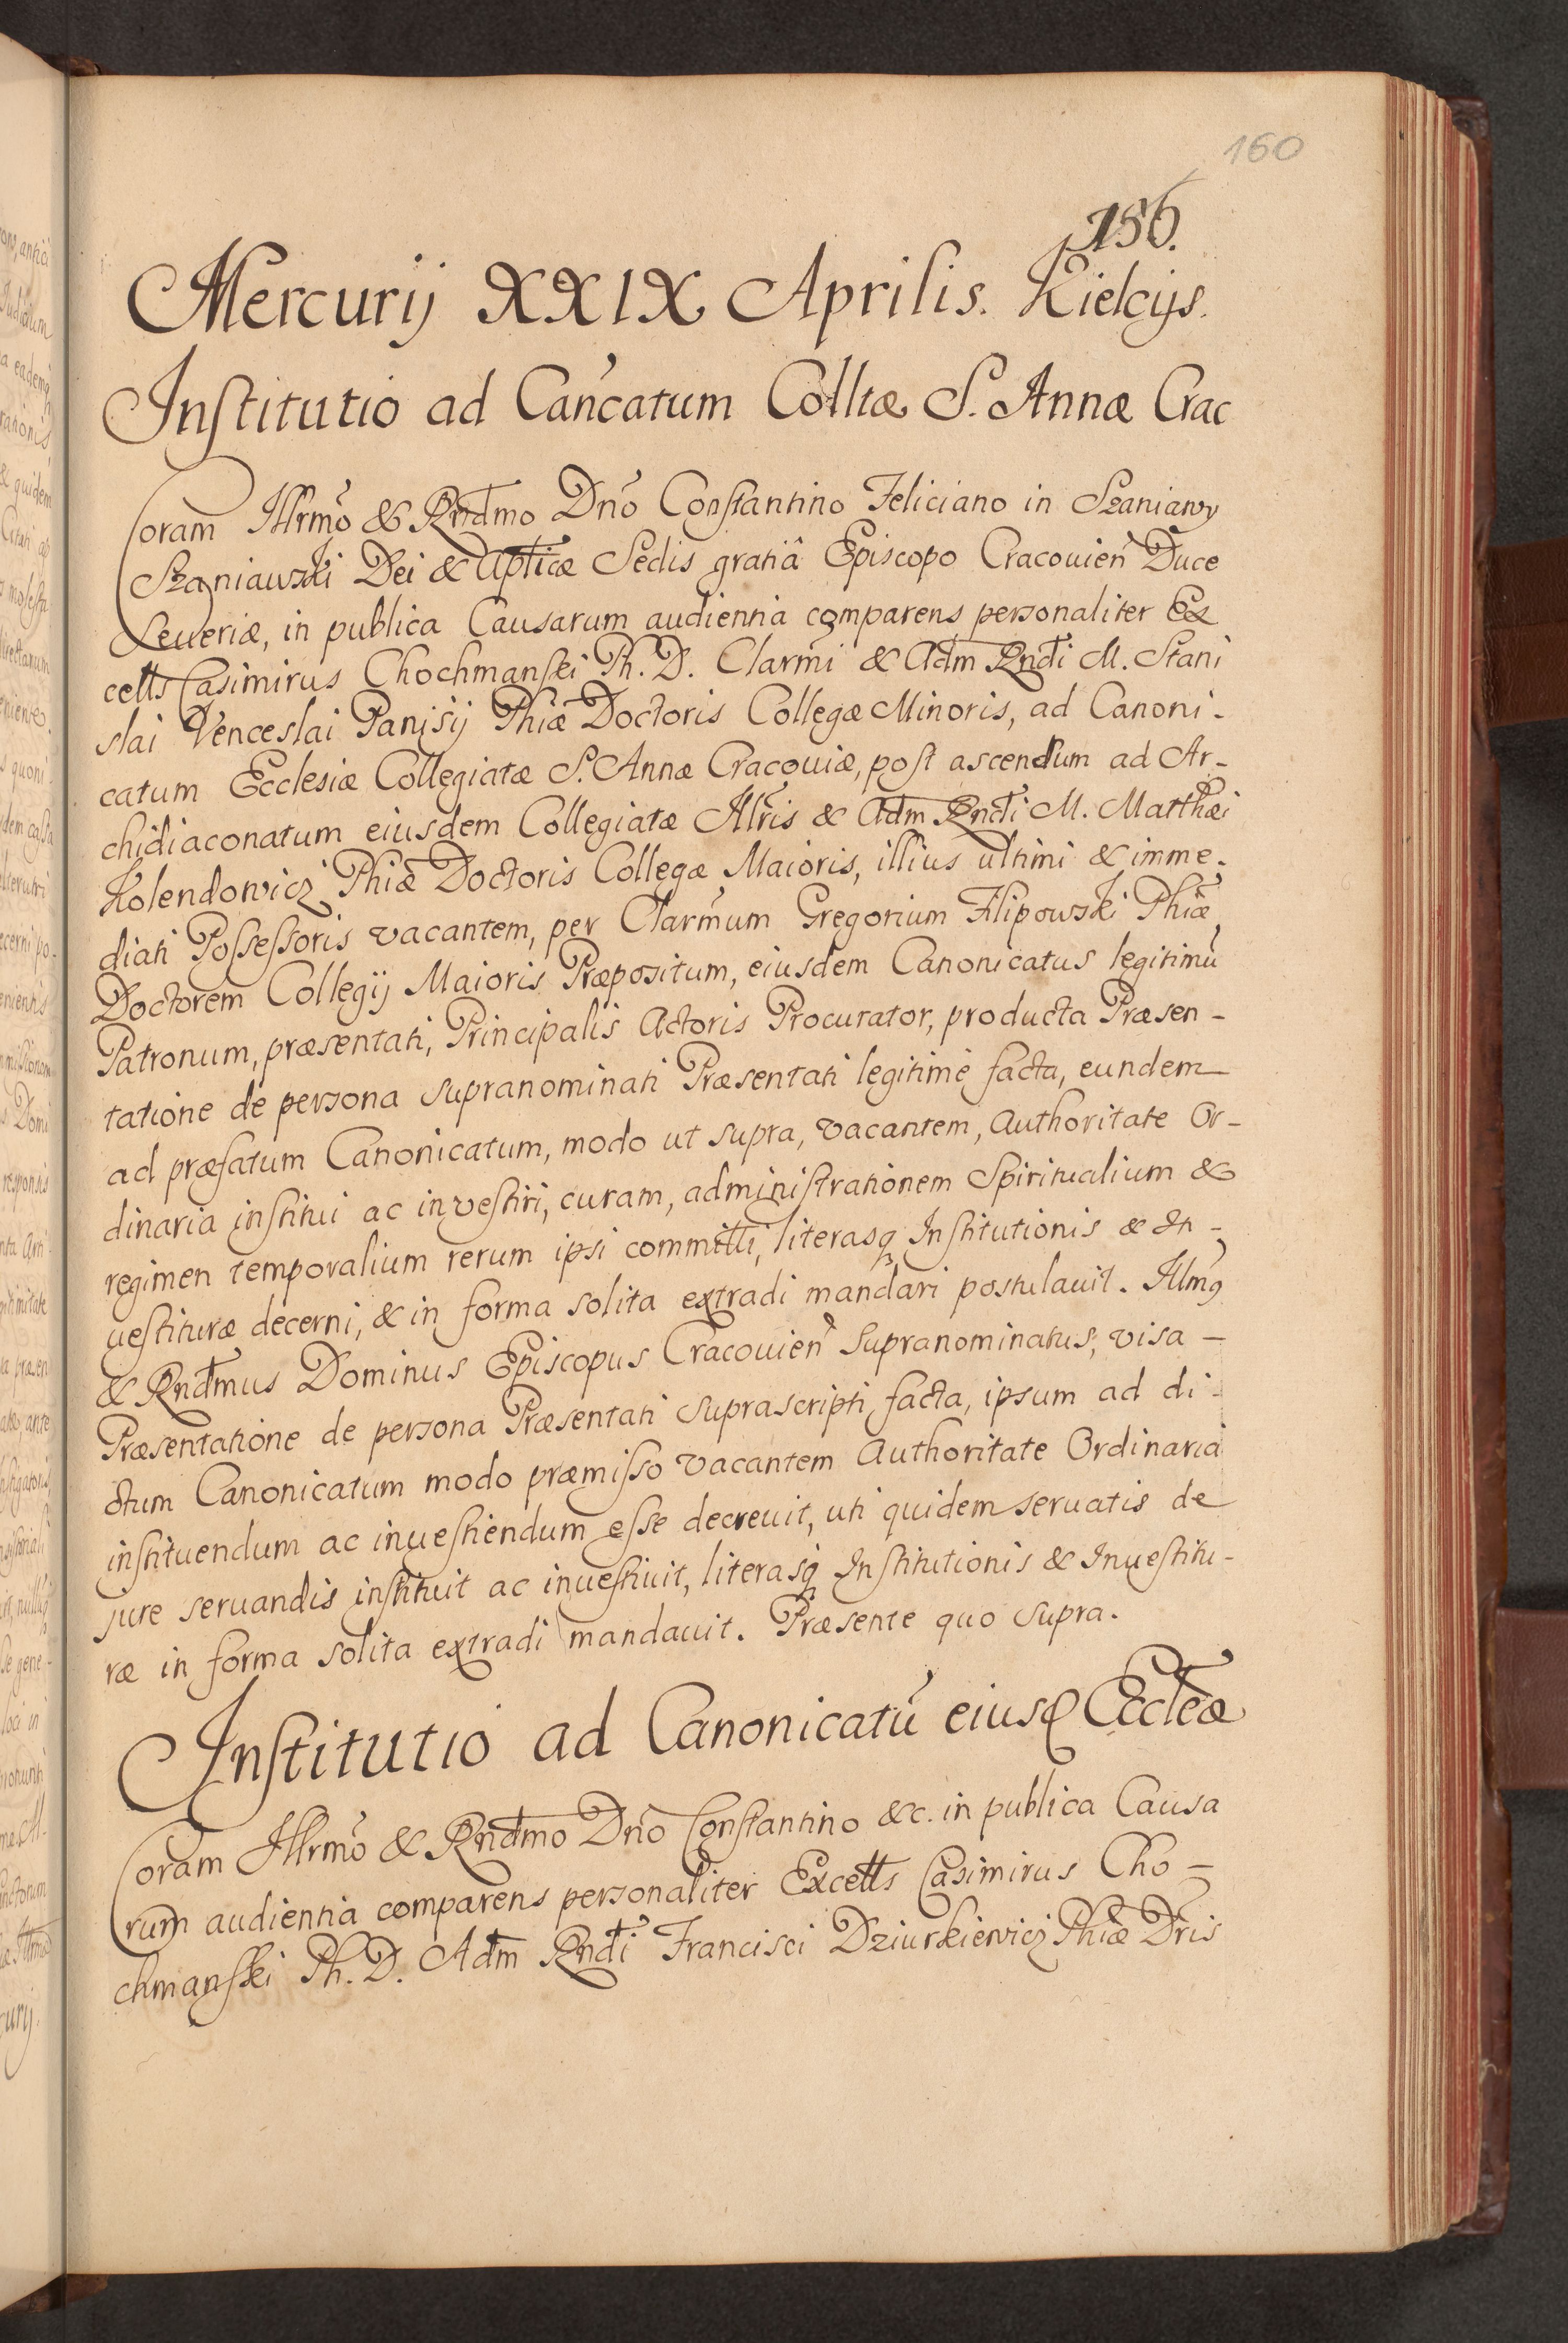 160
156.
Mercurij XXIX Aprilis. Kielcijs.
Institutio ad Cañcatum Colltæ S. Annæ Crac
Coram Illrmo & Rndmo Dno Constantino Feliciano in Szaniawy
Szaniawski Dei & Aplicæ Sedis gratiâ Episcopo Cracouien Duce
Seueriæ, in publica Causarum audientia comparens personaliter Ex
cells Casimirus Chochmanski Ph. D. Clarmi & Adm Rndi M. Stani
slai Venceslai Panisij Phiæ Doctoris Collegæ Minoris, ad Canoni-
catum Ecclesiæ Collegiatæ S. Annæ Cracouiæ, post ascendum ad Ar-
chidiaconatum eiusdem Collegiatæ Illris & Adm Rndi M. Matthæi
Kolendowicz Phiæ Doctoris Collegæ Maioris, illius ultimi & imme-
diati Possessoris vacantem, per Clarmum Gregorium Filipowski Phiæ
Doctorem Collegij Maioris Præpositum, eiusdem Canonicatus legitimũ
Patronum, præsentati, Principalis Actoris Procurator, producta Præsen-
tatione de persona supranominati Præsentati legitimè facta, eundem
ad præfatum Canonicatum, modo ut supra, vacantem, Authoritate Or-
dinaria institui ac investiri, curam, administrationem Spiritualium &
regimen temporalium rerum ipsi committi, literasq Institutionis & In-
uestituræ decerni, & in forma solita extradi mandari postulauit. Illmg
& Rndmus Dominus Episcopus Cracouien supranominatus, visa
Præsentatione de persona Præsentati suprascripti facta, ipsum ad di-
ctum Canonicatum modo præmisso vacantem Authoritate Ordinaria
instituendum ac inuestiendum esse decreuit, uti quidem seruatis de
jure seruandis instituit ac inuestiuit, literasq Institutionis & Inuestitu-
ræ in forma solita extradi mandauit. Præsente quo supra.
Institutio ad Canonicatũ eiusd Eccleæ
Coram Illrmo & Rndmo Dno Constantino &c. in publica Causa
rum audientia comparens personaliter Excells Casimirus Cho-
chmanski Ph. D. Adm Rndi Francisci Dziurkiewicz Phiæ Dris